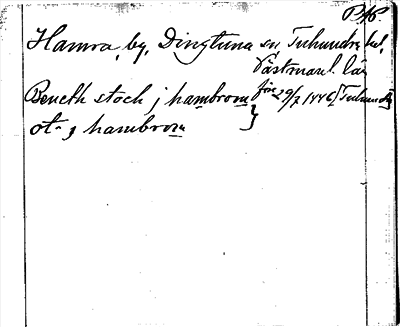 Hamra, by, Dingtuna sn Tuhundra hd,
Västmanl. län
Beneth stock j hambrom före 29/7 1446 [Tuhundra]
ot- j hambrom }